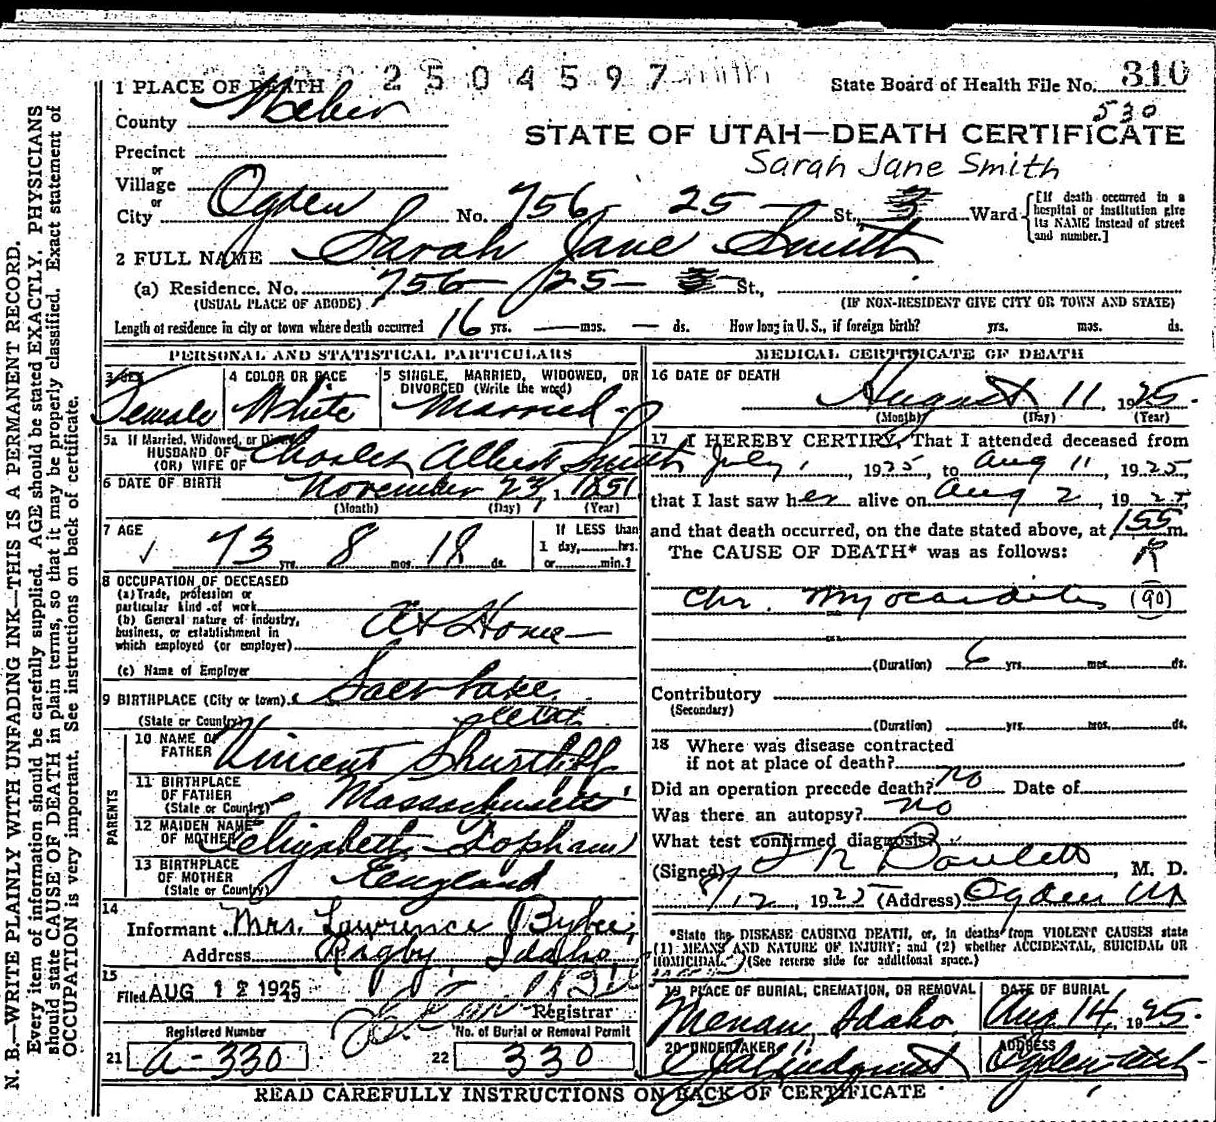 2504597
1 PLACE OF DEATH
State Board of Health File No. 310
530
County Weber
STATE OF UTAH—DEATH CERTIFICATE
Precinct
Sarah Jane Smith
or
Village
or
City Ogden No. 756 25 — St., 3 Ward
[If death occurred in a hospital or institution give its NAME instead of street and number.]
2 FULL NAME Sarah Jane Smith
(a) Residence. No. 756 — 25 — St.,
(USUAL PLACE OF ABODE) (IF NON-RESIDENT GIVE CITY OR TOWN AND STATE)
Length of residence in city or town where death occurred 16 yrs. — mos. — ds. How long in U. S., if foreign birth? yrs. mos. ds.
PERSONAL AND STATISTICAL PARTICULARS
3 SEX
Female
4 COLOR OR RACE
White
5 SINGLE, MARRIED, WIDOWED, OR
DIVORCED (Write the word)
Married
5a If Married, Widowed, or Divorced
HUSBAND OF
(OR) WIFE OF Charles Albert Smith
6 DATE OF BIRTH November 23, 1851
(Month) (Day) (Year)
7 AGE
73 yrs. 8 mos. 18 ds.
If LESS than
1 day, hrs.
or min.?
8 OCCUPATION OF DECEASED
(a) Trade, profession or
particular kind of work
(b) General nature of industry,
business, or establishment in
which employed (or employer)
At Home
(c) Name of Employer
9 BIRTHPLACE (City or town) Salt Lake
(State or Country) Utah
PARENTS
10 NAME OF
FATHER Vincent Shurtliff
11 BIRTHPLACE
OF FATHER
(State or Country) Massachusetts
12 MAIDEN NAME
OF MOTHER Elizabeth Topham
13 BIRTHPLACE
OF MOTHER
(State or Country) England
14
Informant Mrs. Lawrence Bybee,
Address Rigby, Idaho
15
Filed AUG 12 1925
Registrar
Registered Number No. of Burial or Removal Permit
21 a-330 22 330
MEDICAL CERTIFICATE OF DEATH
16 DATE OF DEATH
August 11, 1925.
(Month) (Day) (Year)
17 I HEREBY CERTIFY, That I attended deceased from
July, 1925, to Aug 11, 1925,
that I last saw her alive on Aug 2, 1925
and that death occurred, on the date stated above, at 155 m.
P
The CAUSE OF DEATH* was as follows:
Chr. Myocarditis (90)
(Duration) 6 yrs. mos. ds.
Contributory
(Secondary)
(Duration) yrs. mos. ds.
18 Where was disease contracted
if not at place of death?
Did an operation precede death? no Date of
Was there an autopsy? no
What test confirmed diagnosis?
(Signed), M. D.
8/12, 1925 (Address) Ogden Ut
*State the DISEASE CAUSING DEATH, or, in deaths from VIOLENT CAUSES state
(1) MEANS AND NATURE OF INJURY; and (2) whether ACCIDENTAL, SUICIDAL OR
HOMICIDAL. (See reverse side for additional space.)
19 PLACE OF BURIAL, CREMATION, OR REMOVAL
Menan, Idaho.
DATE OF BURIAL
Aug. 14, 1925.
20 UNDERTAKER
ADDRESS
Ogden Utah
READ CAREFULLY INSTRUCTIONS ON BACK OF CERTIFICATE
N. B.—WRITE PLAINLY WITH UNFADING INK—THIS IS A PERMANENT RECORD.
Every item of information should be carefully supplied. AGE should be stated EXACTLY. PHYSICIANS
should state CAUSE OF DEATH in plain terms, so that it may be properly classified. Exact statement of
OCCUPATION is very important. See instructions on back of certificate.